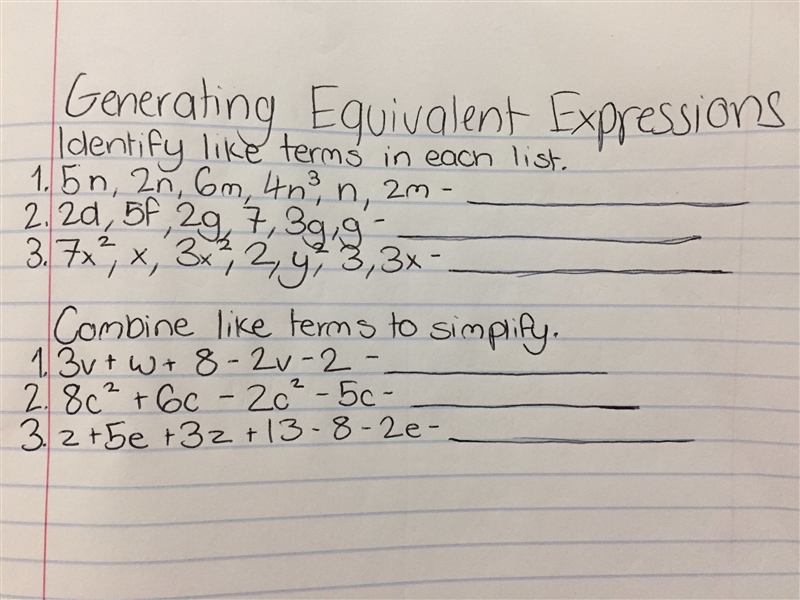 Generating Equivalent Expressions
Identify like terms in each list.
1. 5n, 2n, 6m, 4n³, n, 2m - ________
2. 2d, 5f, 2g, 7, 3g, g - ________
3. 7x², x, 3x², 2, y², 3, 3x - ________
Combine like terms to simplify.
1. 3v + w + 8 - 2v - 2 - ________
2. 8c² + 6c - 2c² - 5c - ________
3. z + 5e + 3z + 13 - 8 - 2e - ________